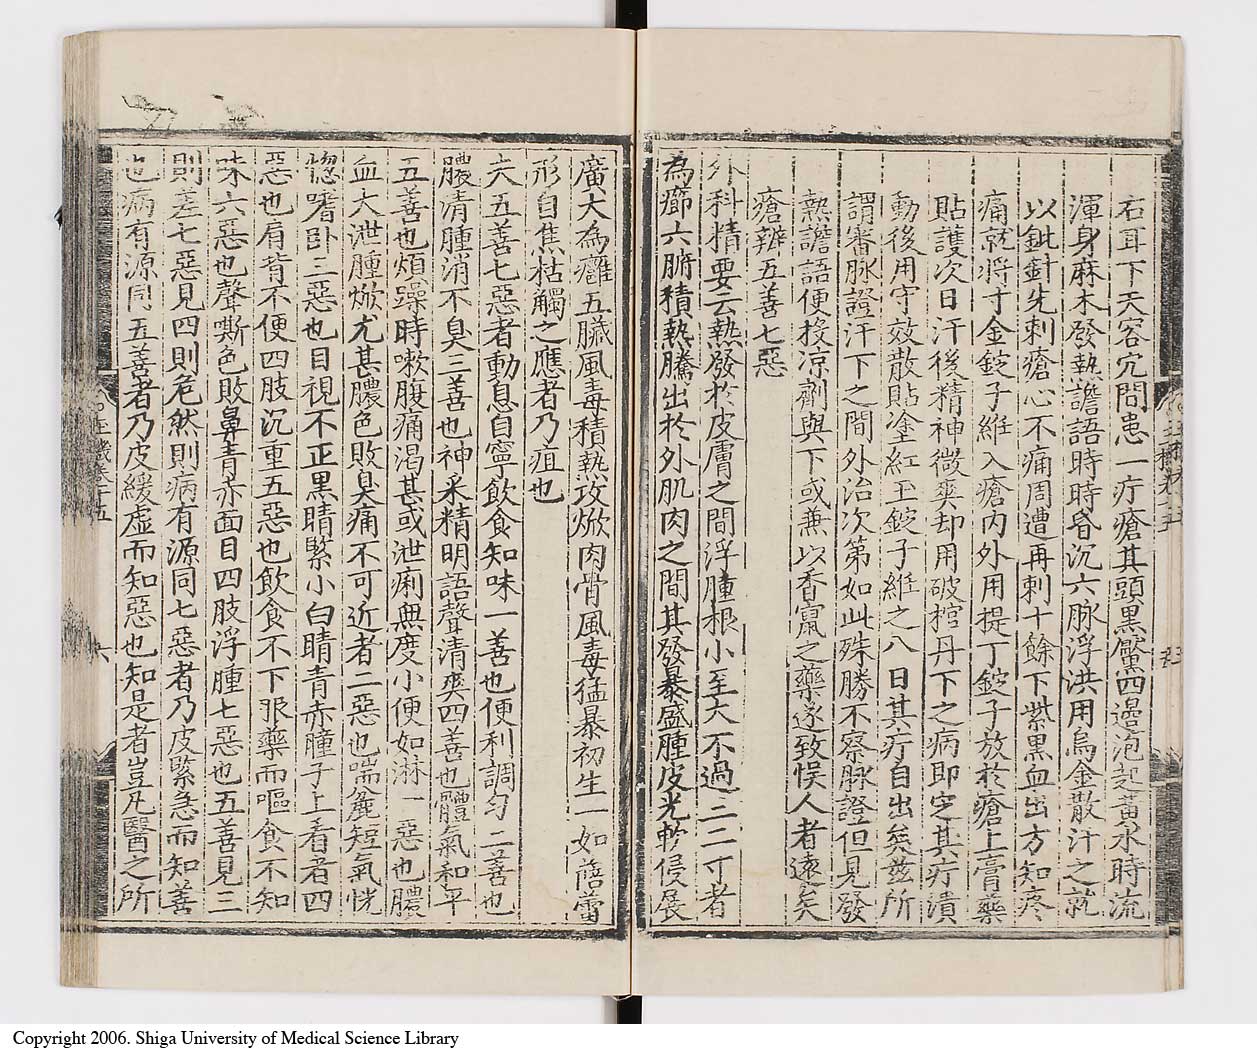 右耳下天容穴間患一疔瘡其頭黑黶四邊泡起黃水時流
渾身麻木發熱譫語時時昏沉六脉浮洪用烏金散汗之就
以鈹針先刺瘡心不痛周遭再刺十餘下紫黑血出方知疼
痛就將寸金錠子維入瘡內外用提丁錠子放於瘡上膏藥
貼護次日汗後精神微爽却用破棺丹下之病即定其疔潰
動後用守效散貼塗紅玉錠子維之八日其疔自出矣兹所
謂審脉證汗下之間外治次第如此殊勝不察脉證但見發
熱譫語便投凉劑與下或兼以香竄之藥遂致悮人者遠矣
瘡辨五善七惡
外科精要云熱發於皮膚之間浮腫根小至大不過二三寸者
為癤六腑積熱騰出於外肌肉之間其發暴盛腫皮光軟侵展
廣大為癰五臟風毒積熱攻焮肉骨風毒猛暴初生一如蓓蕾
形自焦枯觸之應者乃疽也
夫五善七惡者動息自寧飲食知味一善也便利調勻二善也
膿清腫消不臭三善也神采精明語聲清爽四善也體氣和平
五善也煩躁時嗽腹痛渴甚或泄痢無度小便如淋一惡也膿
血大泄腫焮尤甚膿色敗臭痛不可近者二惡也喘麄短氣恍
惚嗜卧三惡也目視不正黑睛緊小白睛青赤瞳子上看者四
惡也肩背不便四肢沉重五惡也飲食不下服藥而嘔食不知
味六惡也聲嘶色敗鼻青赤面目四肢浮腫七惡也五善見三
則差七惡見四則危然則病有源同七惡者乃皮緊急而知善
也病有源同五善者乃皮緩虛而知惡也知是者豈凡醫之所
六
Copyright 2006. Shiga University of Medical Science Library